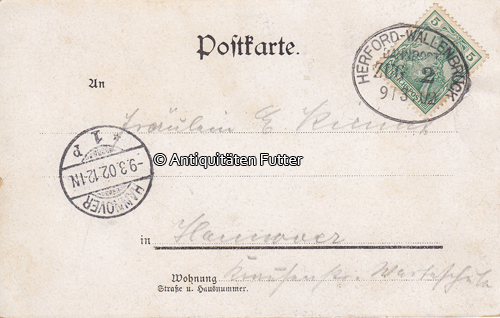 Postkarte.
5 5
HERFORD-WALLENBRÜCK
BAHNPOST
ZUG 2
9 / 3 02
An
Fräulein E
* 1 P
-9.3.02.12-1N
HANNOVER
© Antiquitäten Futter
in Hannover
Wohnung
Straße u. Hausnummer.